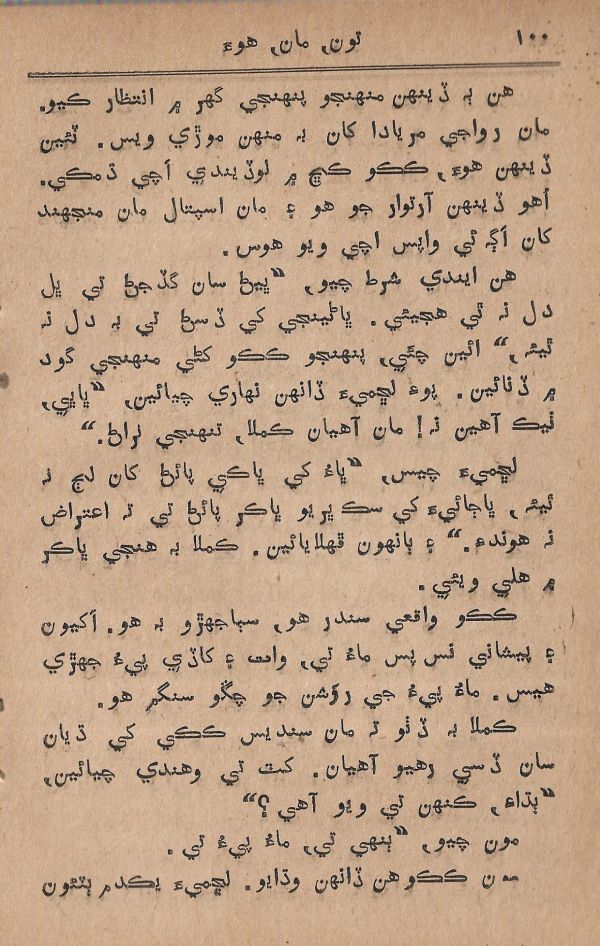 ١٠٠ تون، مان، هوءَ
هن ٻه ڏينهن منهنجو پنهنجي گهر ۾ انتظار ڪيو.
مان رواجي مريادا کان به منهن موڙي ويس. ٽئين
ڏينهن هوءَ، ڪڪو ڪڇ ۾ لوڏيندي اچي ڌمڪي.
اُهو ڏينهن آرتوار جو هو ۽ مان اسپتال مان منجهند
کان اڳ ئي واپس اچي ويو هوس.
هن ايندي شرط چيو، “ڀيڻ سان گڏجڻ تي ڀل
دل نه ٿي هجيئي. ڀاڻيجي کي ڏسڻ تي به دل نه
ٿيئه،“ ائين چئي، پنهنجو ڪڪو کڻي منهنجي گود
۾ ڏنائين. پوءِ لڇميءَ ڏانهن نهاري چيائين، “ڀاڀي،
ٺيڪ آهين نه! مان آهيان ڪملا، تنهنجي نراڻ.“
لڇميءَ چيس، “ڀاءُ کي ڀاڪي پائڻ کان لڄ نه
ٿيئه، ڀاڄائيءَ کي سڪ ڀريو ڀاڪر پائڻ تي ته اعتراض
نه هوندءِ.“ ۽ ٻانهون ڦهلايائين. ڪملا به هنجي ڀاڪر
۾ هلي ويئي.
ڪڪو واقعي سندر هو، سٻاجهڙو به هو. اکيون
۽ پيشاني ٺس پس ماءُ تي، وات ۽ کاڏي پيءُ جهڙي
هيس. ماءُ پيءُ جي روَشن جو چڱو سنگم هو.
ڪملا به ڏٺو ته مان سنديس ڪڪي کي ڌيان
سان ڏسي رهيو آهيان. کٽ تي وهندي چيائين،
“ٻڌاءِ، ڪنهن تي ويو آهي؟“
مون چيو، “ٻنهي تي، ماءُ پيءُ تي.
ن ڪڪو هن ڏانهن وڌايو. لڇميءَ يڪدم ٻٽئون